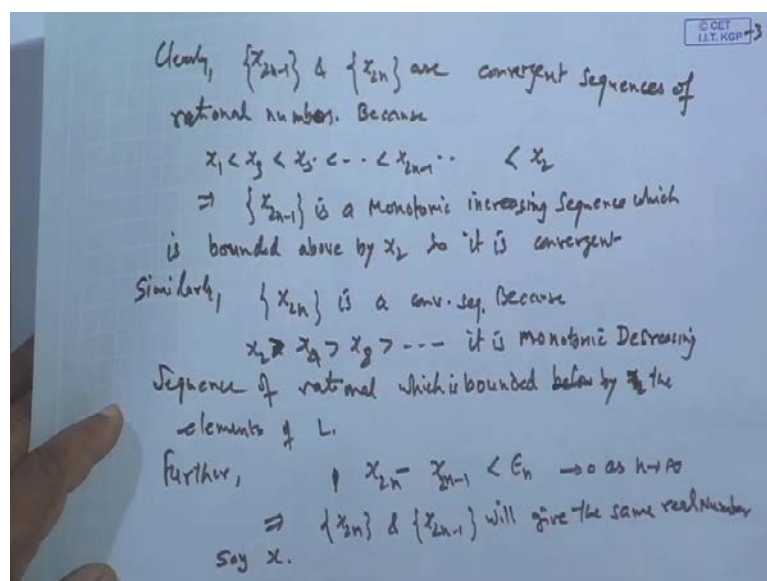 © CET
I.I.T. KGP -3
Clearly, {x_{2n-1}} & {x_{2n}} are convergent sequences of
rational numbers. Because
x_1 < x_3 < x_5 < -- < x_{2n-1} .. < x_2
⇒ {x_{2n-1}} is a Monotonic increasing Sequence which
is bounded above by x_2 So it is convergent
Similarly, {x_{2n}} is a conv. seq. Because
x_2 > x_4 > x_8 > --- it is Monotonic Decreasing
Sequence of rational which is bounded below by the
elements of L.
Further, x_{2n} - x_{2n-1} < ε_n → 0 as n→∞
⇒ {x_{2n}} & {x_{2n-1}} will give the same real Number
say x.